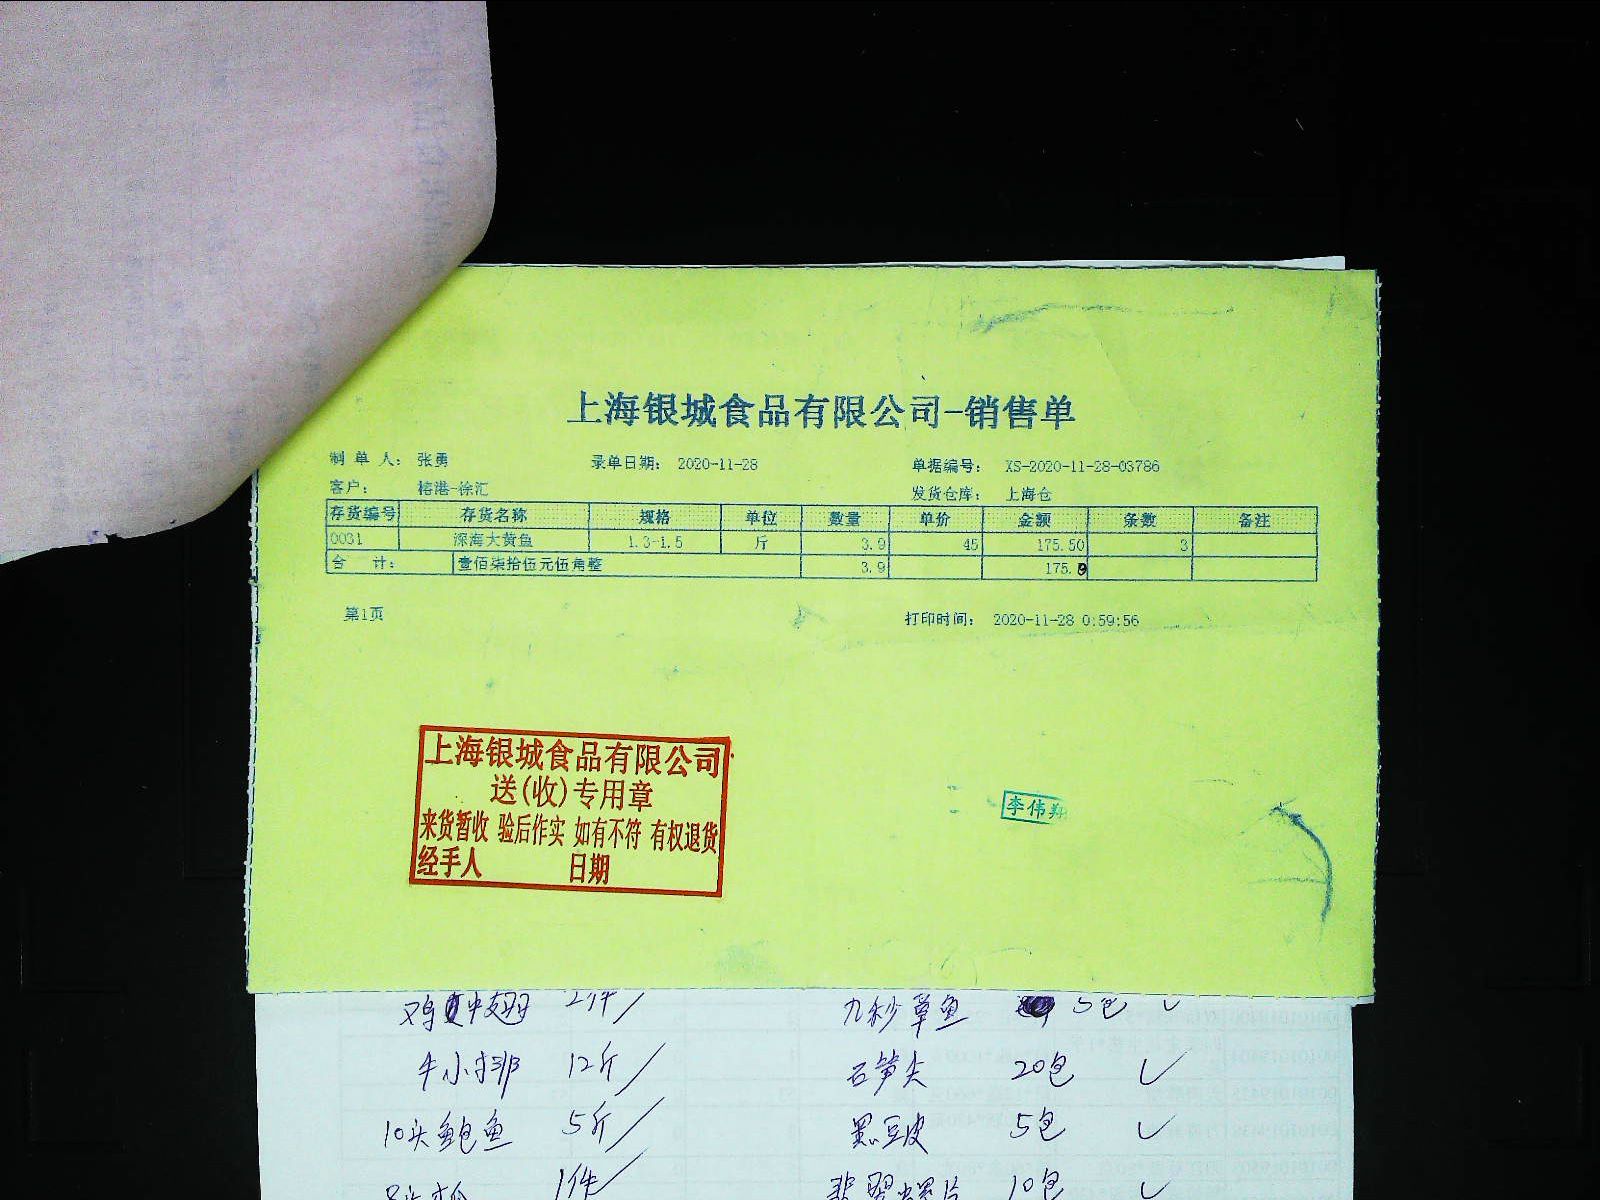 上海银城食品有限公司-销售单
制 单 人： 张勇 录单日期： 2020-11-28 单据编号： XS-2020-11-28-03786
客户： 榕港-徐汇 发货仓库： 上海仓
存货编号 存货名称 规格 单位 数量 单价 金额 条数 备注
0031 深海大黄鱼 1.3-1.5 斤 3.9 45 175.50 3
合 计： 壹佰柒拾伍元伍角整 3.9 175.
第1页 打印时间： 2020-11-28 0:59:56
上海银城食品有限公司
送(收)专用章
来货暂收 验后作实 如有不符 有权退货
经手人 日期
李伟翔
鸡中翅 2件 九秒草鱼 5包
牛小排 12斤 石笋尖 20包
10头鲍鱼 5斤 黑豆皮 5包
1件 翡翠螺片 10包